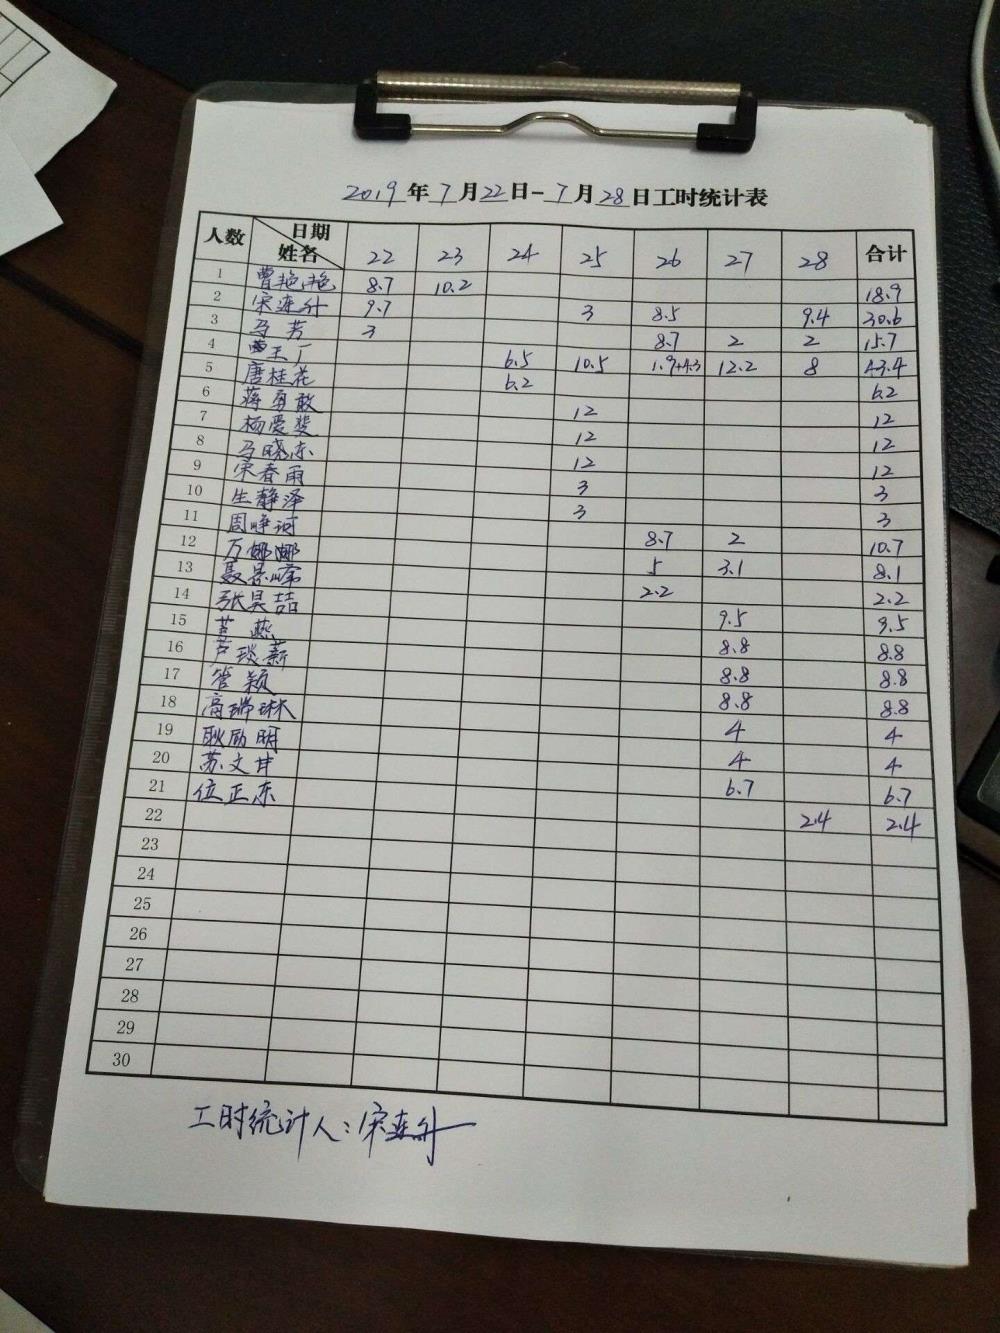 2019年7月22日-7月28日工时统计表
人数 日期 姓名 22 23 24 25 26 27 28 合计
1 曹艳艳 8.7 10.2 18.9
2 宋连升 9.7 3 8.5 9.4 30.6
3 马芳 3 8.7 2 2 15.7
4 王厂 6.5 10.5 1.9+4.3 12.2 8 43.4
5 唐桂花 6.2 6.2
6 蒋勇敢 12 12
7 杨爱斐 12 12
8 马晓东 12 12
9 宋春雨 3 3
10 生静泽 3 3
11 周峥珂 8.7 2 10.7
12 万娜娜 5 3.1 8.1
13 聂景峰 2.2 2.2
14 张昊喆 9.5 9.5
15 燕 8.8 8.8
16 芦琰薪 8.8 8.8
17 管颖 8.8 8.8
18 高瑞琳 4 4
19 耿励明 4 4
20 苏文井 6.7 6.7
21 位正东 2.4 2.4
22
23
24
25
26
27
28
29
30
工时统计人：宋连升